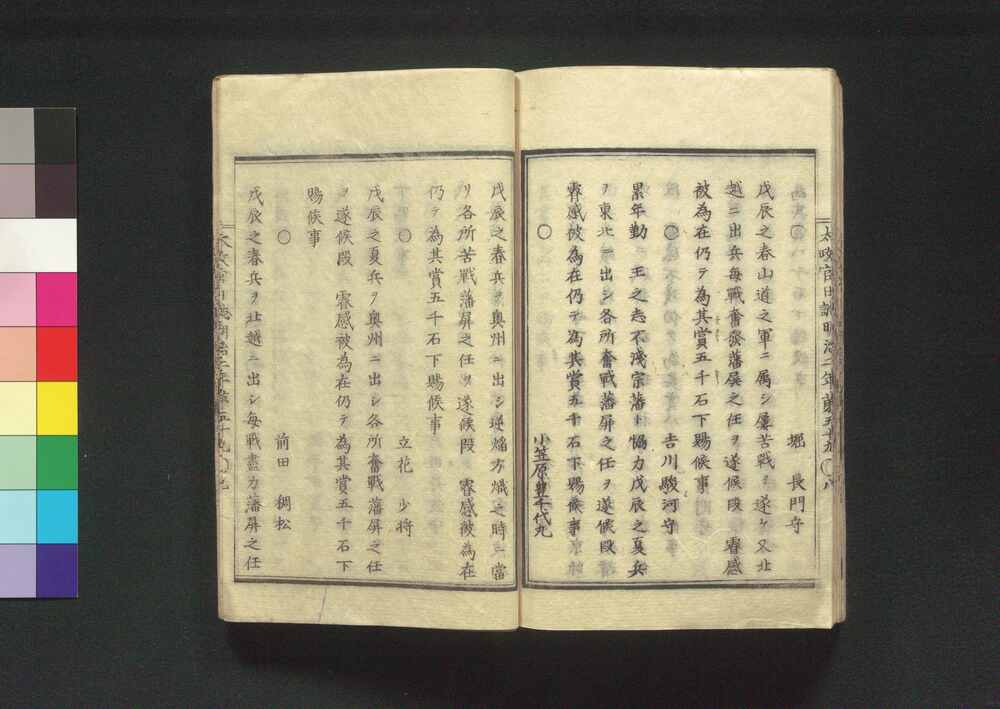 太政官日誌明治二年第五十九 〇八
〇 堀 長門守
戊辰之春山道之軍ニ属シ屢苦戰ヲ遂ケ又北
越ニ出兵每戰奮發藩屏之任ヲ遂候段 睿感
被為在仍テ為其賞五千石下賜候事
〇 吉川駿河守
累年勤 王之志不淺宗藩ト恊力戊辰之夏兵
ヲ東北ニ出シ各所奮戰藩屏之任ヲ遂候段
睿感被為在仍テ為其賞五千石下賜候事
〇 小笠原豊千代丸
戊辰之春兵ヲ奧州ニ出シ逆焰方熾之時ニ當
リ各所苦戰藩屏之任ヲ遂候段 睿感被為在
仍テ為其賞五千石下賜候事
〇 立花 少將
戊辰之夏兵ヲ奧州ニ出シ各所奮戰藩屏之任
ヲ遂候段 睿感被為在仍テ為其賞五千石下
賜候事
〇 前田 稠松
戊辰之春兵ヲ北越ニ出シ每戰盡力藩屏之任
太政官日誌明治二年第五十九 〇九